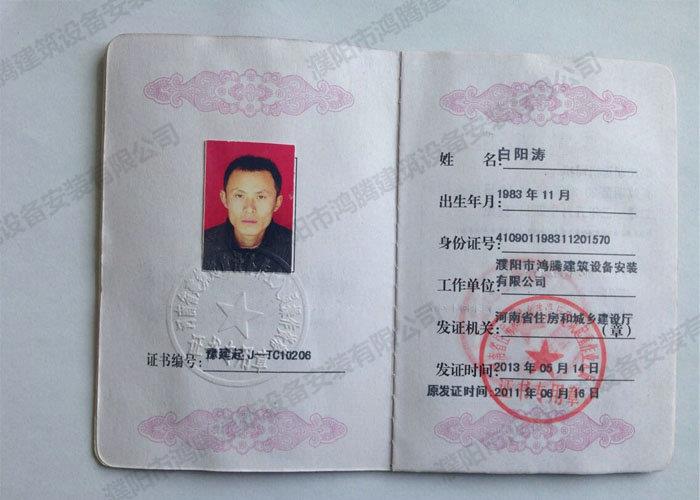 证书编号：豫建起J—TC10206
姓 名：白阳涛
出生年月：1983 年 11 月
身份证号：410901198311201570
工作单位：濮阳市鸿腾建筑设备安装
有限公司
发证机关：河南省住房和城乡建设厅
（章）
发证时间：2013 年 05 月 14 日
原发证时间：2011 年 06 月 16 日
证书专用章
濮阳市鸿腾建筑设备安装有限公司